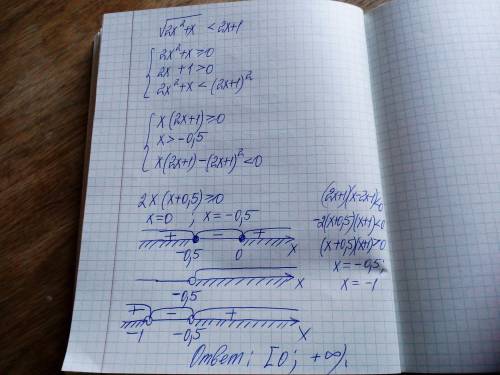 √2x²+x < 2x+1
2x²+x ≥ 0
2x+1 > 0
2x²+x < (2x+1)²
x(2x+1) ≥ 0
x > -0,5
x(2x+1)-(2x+1)² < 0
2x(x+0,5) ≥ 0
x=0 ; x=-0,5
+ - +
-0,5 0 x
-0,5 x
+ - +
-1 -0,5 x
(2x+1)(x-2x-1)<0
-2(x+0,5)(x+1)<0
(x+0,5)(x+1)>0
x=-0,5;
x=-1
Ответ: [0; +∞).